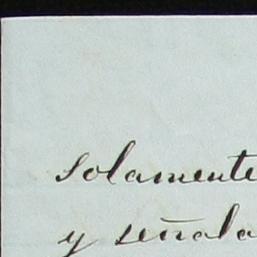 solamente
y señala